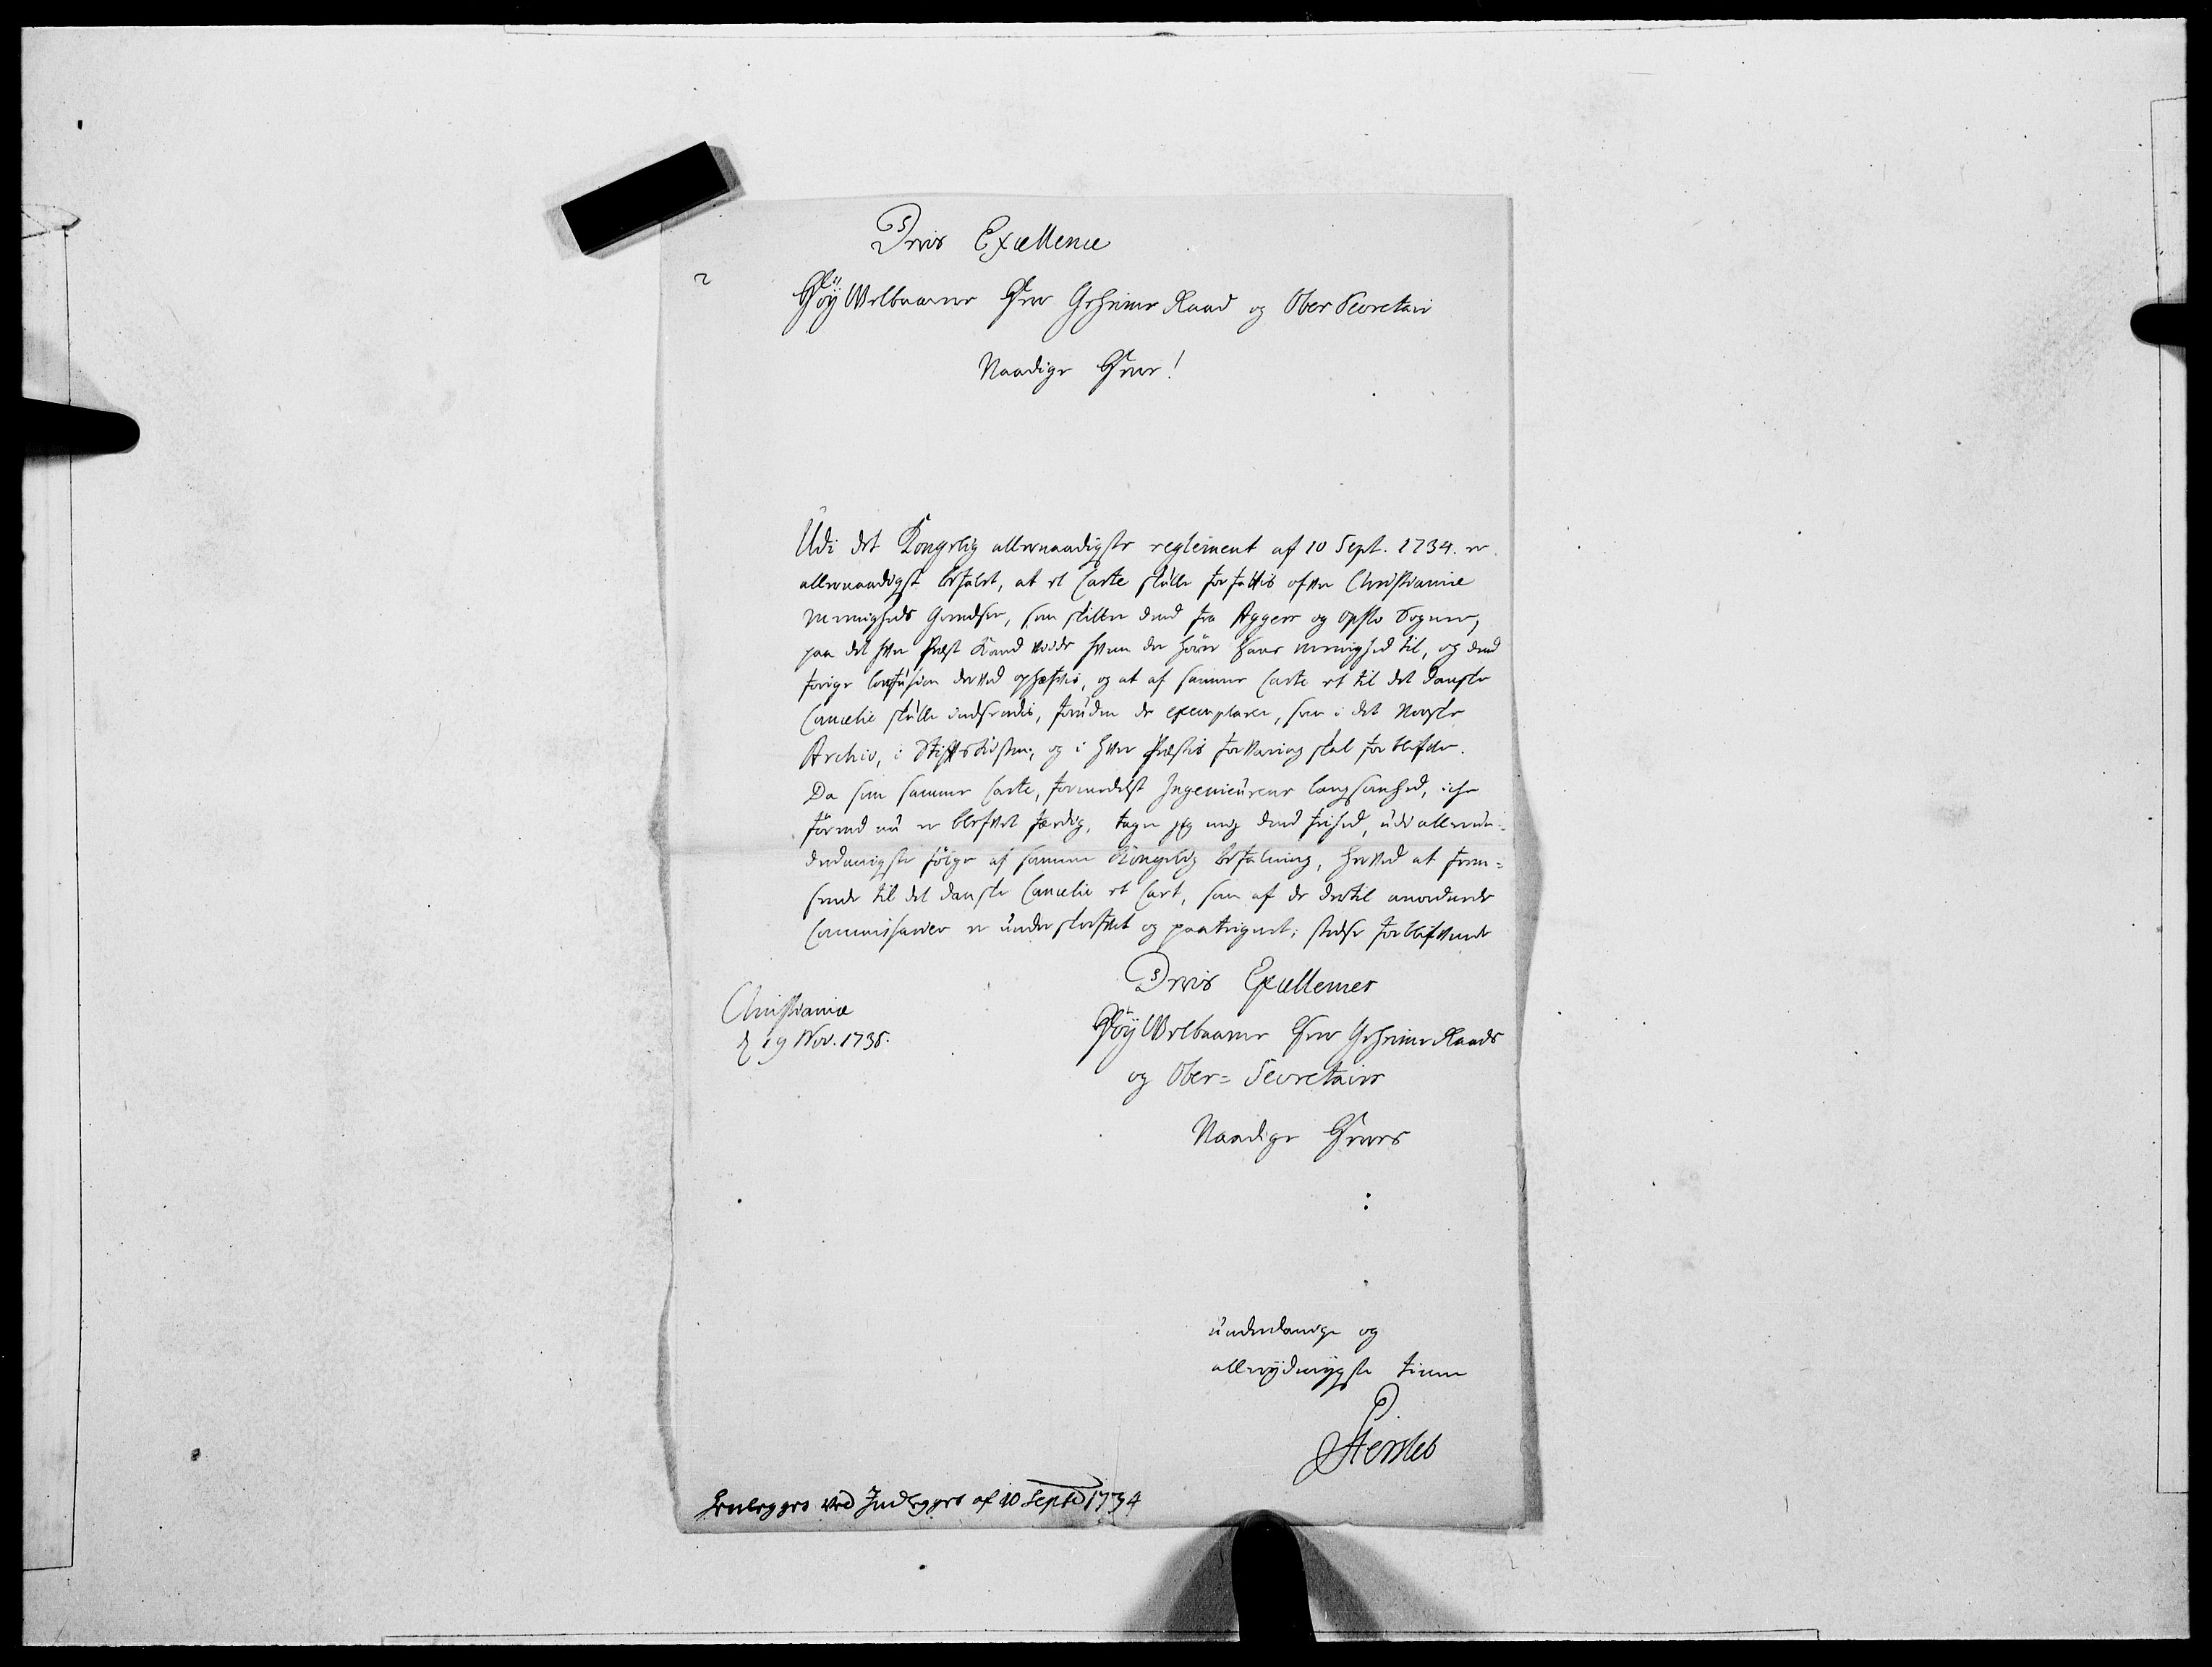 Deris Excellence
Høy Welbaarne Herr Geheime Raad og Ober Secretair
Naadige Herre!
Udi det Kongelig allernaadigste reglement af 10 Sept. 1734. er
allernaadigst befalet, at et Carte skulle forfattis ofver Christianiæ
Menigheds Grendser, som skiller dend fra Aggers og Opslo Sogner,
paa det hver Præst Kand vide hvem der hører hans menighed til, og dend
forige Confusion derved ophæfvis, og at af samme Carte et til det danske
Cancelie skulle indsendis, foruden de exemplarer, som i det Norske
Archiv, i Stifts Kisten, og i hver Præstis forvaring skal forblifve.
Da som samme Carte, formedelst Ingenieurens langsomhed, icke
førend nu er blefvet færdig, tager jeg mig dend frihed, udi allerun-
derdanigste følge af samme Kongelig befaling, herved at frem=
sende til det danske Cancelie et Cart, som af de dertil anordnede
Commissarier er underskrefvet og paategnet; stedse forblifvende
Deris Excellences
Høy Welbaarne Herr Geheime Raads
og Ober= Secretairs
Naadige Herres
Christianiæ
d 19 Nov. 1735.
underdanige og
allerydmygste tiener
PHersleb
Henlegges ved Indlegget af 10 Septb 1734